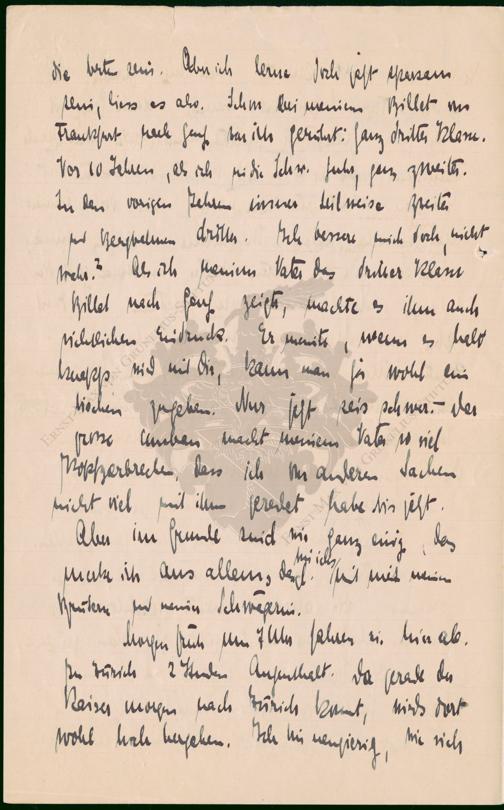 die besten sein. Aber ich lerne doch jetzt sparsam
sein, liess es also. Schon bei meinem Billet von
Frankfurt nach Genf war ich gerührt: ganz dritter Klasse.
Vor 10 Jahren, als ich in die Schw. fuhr, ganz zweiter.
In den vorigen Jahren immer teilweise zweiter
und Bergbahnen dritter. Ich bessere mich doch, nicht
wahr? Als ich meinem Vater das dritter Klasse
Billet nach Genf zeigte, machte es ihm auch
sichtlichen Eindruck. Er meinte, wenn es halt
knapp wird mit Dir, kann man ja wohl ein
bischen zugeben. Nur jetzt seis schwer. Der
grosse Umbau macht meinem Vater so viel
Kopfzerbrechen, dass ich von anderen Sachen
nicht viel mit ihm geredet habe bis jetzt.
Aber im Grunde sind wir ganz einig, das
merke ich aus allem, mit meinen
Brüdern und meiner Schwägerin.
Morgen früh um 7 Uhr fahren wir hier ab.
In Zürich 2 Stunden Aufenthalt. Da gerade der
Kaiser morgen nach Zürich kommt, wirds dort
wohl hoch hergehen. Ich bin neugierig, wie sich